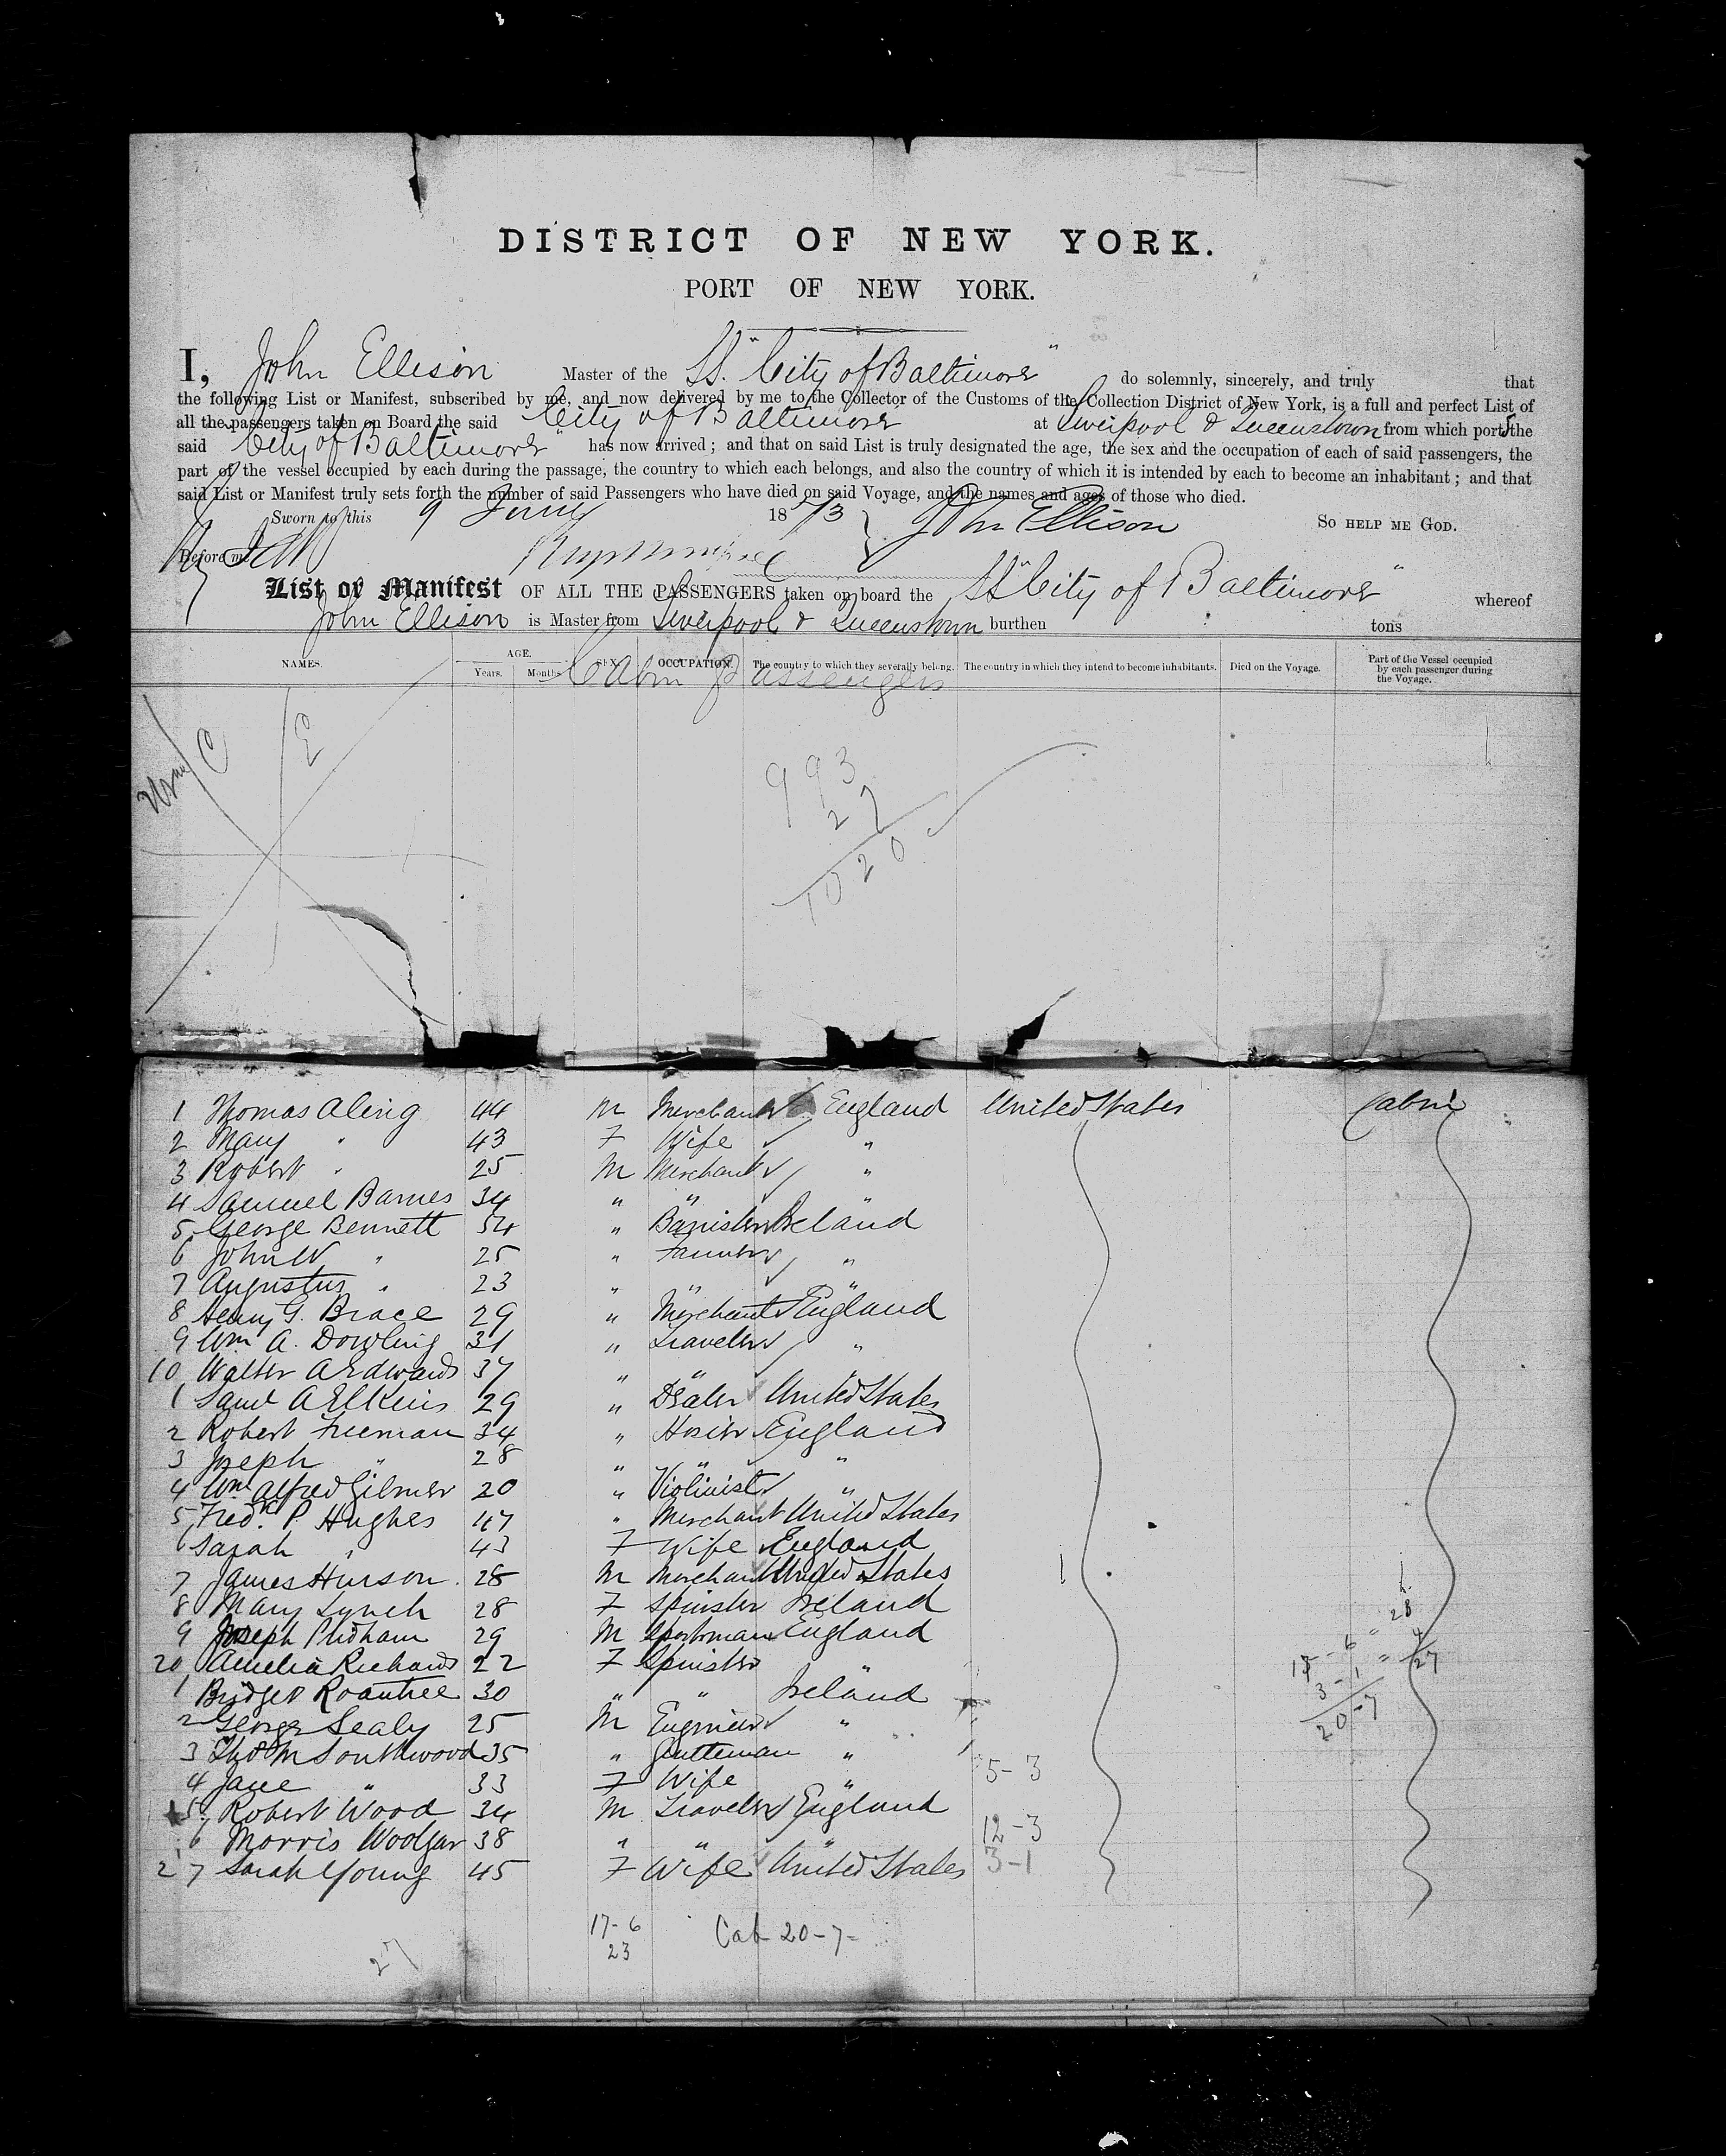 DISTRICT OF NEW YORK.
PORT OF NEW YORK.
I, John Ellison Master of the SS. "City of Baltimore" do solemnly, sincerely, and truly that
the following List or Manifest, subscribed by me, and now delivered by me to the Collector of the Customs of the Collection District of New York, is a full and perfect List of
all the passengers taken on Board the said City of Baltimore at Liverpool & Queenstown from which ports the
said "City of Baltimore" has now arrived; and that on said List is truly designated the age, the sex and the occupation of each of said passengers, the
part of the vessel occupied by each during the passage, the country to which each belongs, and also the country of which it is intended by each to become an inhabitant; and that
said List or Manifest truly sets forth the number of said Passengers who have died on said Voyage, and the names and ages of those who died.
Sworn to this 9 June 1873 John Ellison So HELP ME GOD.
Before me
List or Manifest OF ALL THE PASSENGERS taken on board the SS "City of Baltimore" whereof
John Ellison is Master from Liverpool & Queenstown burthen tons
NAMES. AGE. Years. Months. SEX. OCCUPATION. The country to which they severally belong. The country in which they intend to become inhabitants. Died on the Voyage. Part of the Vessel occupied by each passenger during the Voyage.
Cabin Passengers
C E
993
27
1020
1 Thomas Aling 44 M Merchant England United States Cabin
2 Mary " 43 F Wife "
3 Robert " 25 M Merchant "
4 Samuel Barnes 34 " " "
5 George Bennett 54 " Barrister Ireland
6 John W " 25 " Farmer "
7 Augustus " 23 " " "
8 Henry G. Brace 29 " Merchant England
9 Wm A. Dowling 31 " Traveler "
10 Walter A Edwards 37 " "
1 Saml A Elkins 29 " Dealer United States
2 Robert Freeman 34 " Hosier England
3 Joseph " 28 " " "
4 Wm Alfred Gilmer 20 " Violinist "
5 Fredk. P. Hughes 47 " Merchant United States
6 Sarah " 43 F Wife England
7 James Hinson 28 M Merchant United States
8 Mary Lynch 28 F Spinster Ireland
9 Joseph Pridham 29 M Sportsman England
20 Amelia Richards 22 F Spinster "
1 Bridget Roantree 30 " " Ireland
2 George Sealy 25 M Engineer "
3 Thos M Southwood 35 " Gentleman "
4 Jane " 33 F Wife "
5 Robert Wood 34 M Traveler England
6 Morris Woolgar 38 " " "
27 Sarah Young 45 F Wife United States
5-3
12-3
3-1
27
3-1
20-7
17-6
23
Cab 20-7-
27